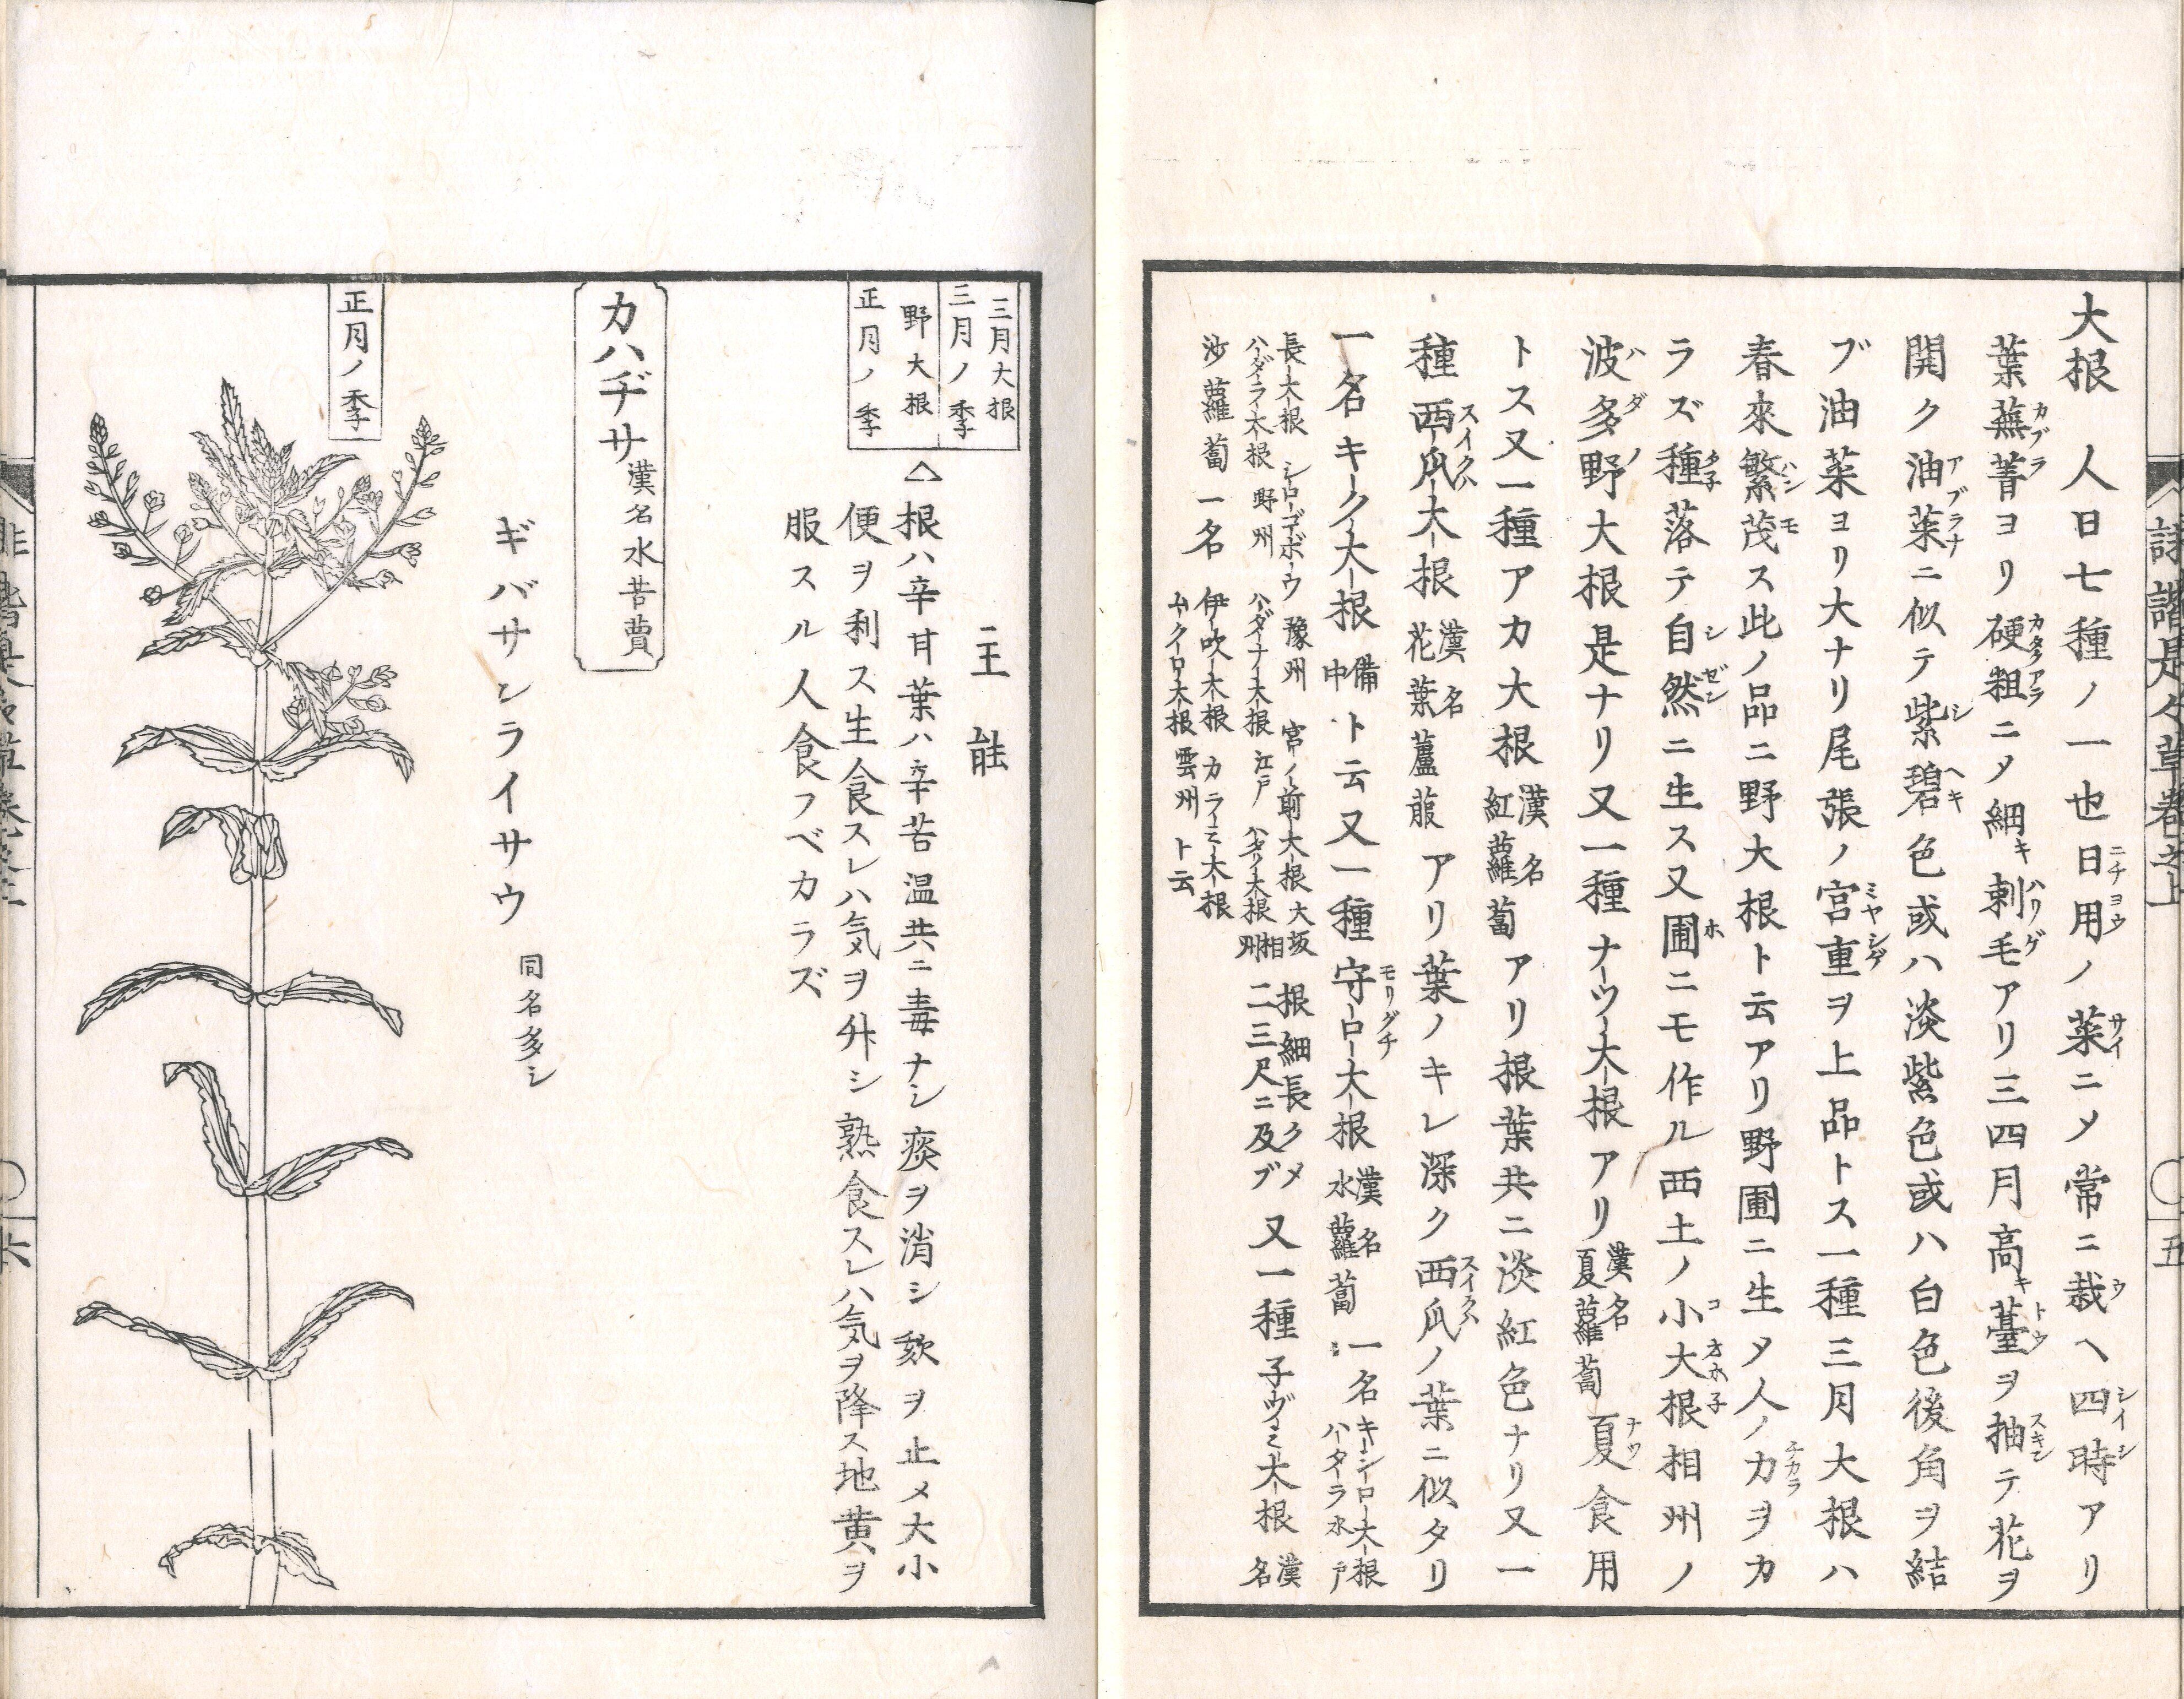 大根　人日七種ノ一也日用ノ菜ニメ常ニ栽ヘ四時アリ
葉蕪菁ヨリ硬粗ニメ細キ刺毛アリ三四月高キ薹ヲ抽テ花ヲ
開ク油菜ニ似テ紫碧色或ハ淡紫色或ハ白色後角ヲ結
ブ油菜ヨリ大ナリ尾張ノ宮重ヲ上品トス一種三月大根ハ
春來繁茂ス此ノ品ニ野大根ト云アリ野圃ニ生メ人ノ力ヲカ
ラズ種落テ自然ニ生ス又圃ニモ作ル西土ノ小大根相州ノ
波多野大根是ナリ又一種ナツ大根アリ漢名夏蘿蔔夏食用
トス又一種アカ大根漢名紅蘿蔔アリ根葉共ニ淡紅色ナリ又一
種西瓜大根漢名花葉蘆菔アリ葉ノキレ深ク西瓜ノ葉ニ似タリ
一名キク大根備中ト云又一種守口大根漢名水蘿蔔一名キシロ大根ハタラ水戸
長大根　シロゴボウ豫州　宮ノ前大根大坂
ハダライ大根野州　ハダナ大根江戸　大根相州
根細長クメ二三尺ニ及ブ又一種子ヅミ大根漢名
沙蘿蔔一名　伊吹大根　カラミ大根
ムクロ大根雲州ト云
誹諧是々草巻之上
五
主　能
三月大根
三月ノ季
野大根
正月ノ季
△根ハ辛甘葉ハ辛苦温共ニ毒ナシ痰ヲ消シ欬ヲ止メ大小
便ヲ利ス生食スレハ気ヲ升シ熟食スレハ気ヲ降ス地黄ヲ
服スル人食フベカラズ
カハヂサ漢名水苦蕒
ギバサンライサウ　同名多シ
正月ノ季
六